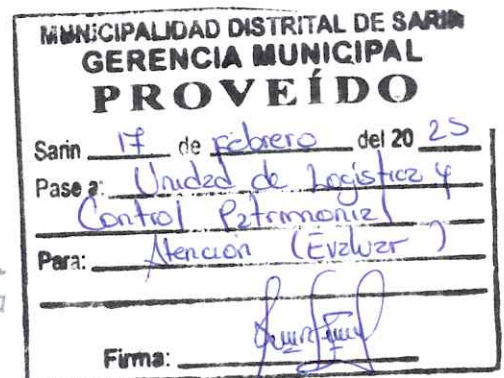 MUNICIPALIDAD DISTRITAL DE SARIN
GERENCIA MUNICIPAL
PROVEÍDO
Sarin 17 de febrero del 2025
Pase a: Unidad de Logística y
Control Patrimonial
Para: Atención (Evaluar)
Firma: